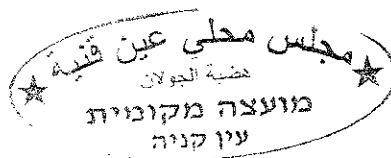 مجلس محلي عين قنية
هضبة الجولان
מועצה מקומית
עין קניה